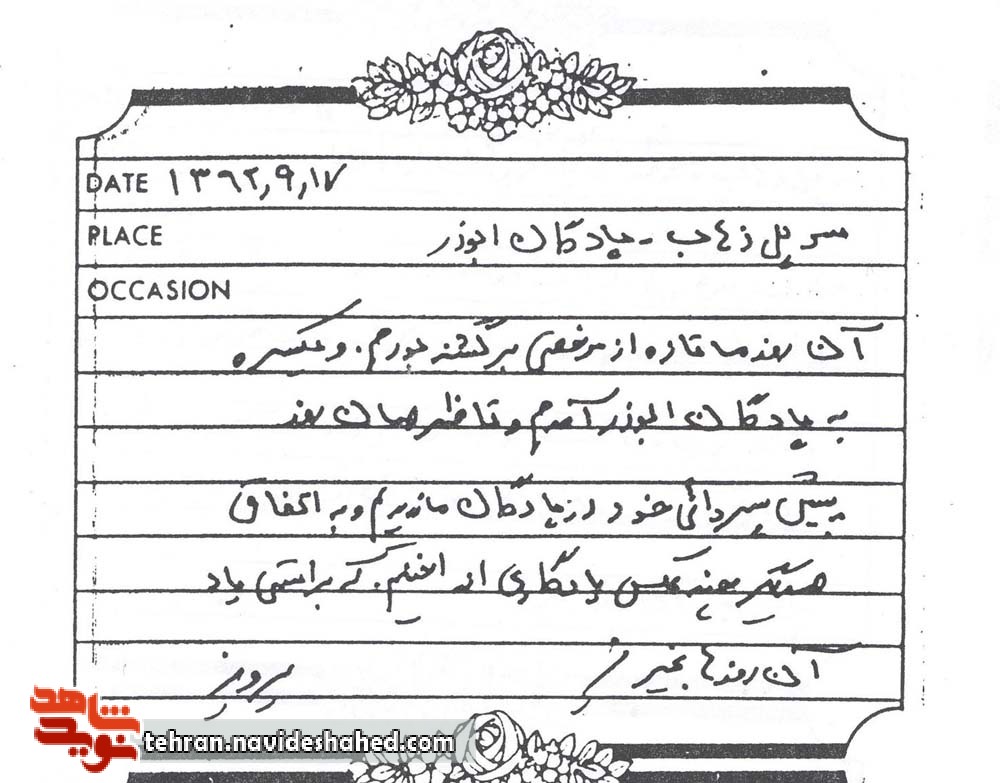 DATE ۱۳۶۲,۹,۱۷
PLACE سر پل ذهاب - پادگان ابوذر
OCCASION
آن روز ما تازه از مرخصی برگشته بودم. و یکسره
به پادگان ابوذر آمدم و تا ظهر همان روز
پیش پسردائی خود در پادگان ماندیم و به اتفاق
همدیگر چند عکس یادگاری انداختیم. که براستی یاد
آن روزها بخیر
پرویز
نوید شاهد
tehran.navideshahed.com